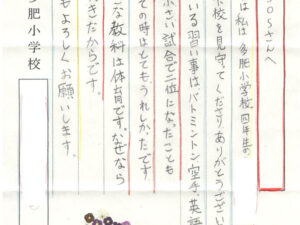 SOSさんへ
は 私は 多肥小学校 四年生の
下校を見守てくださりありがとうござい
いる習い事はバトミントン空手、英語
小さい試合で二位になたことも
ての時はとてもうれしかたです
な教科は体育です。なぜなら
きだからです。
もよろしくお願いします。
多肥小学校